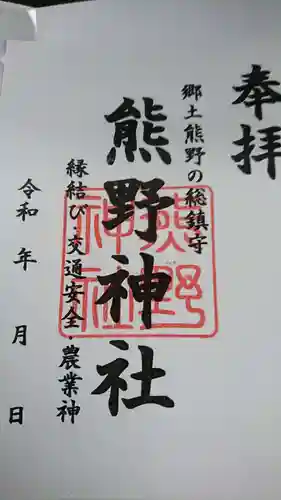 奉拝
郷土熊野の総鎮守
熊野神社
縁結び・交通安全・農業神
令和 年 月 日
熊野
神社